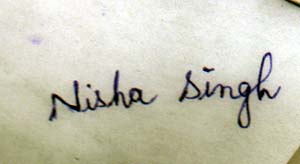 Nisha Singh